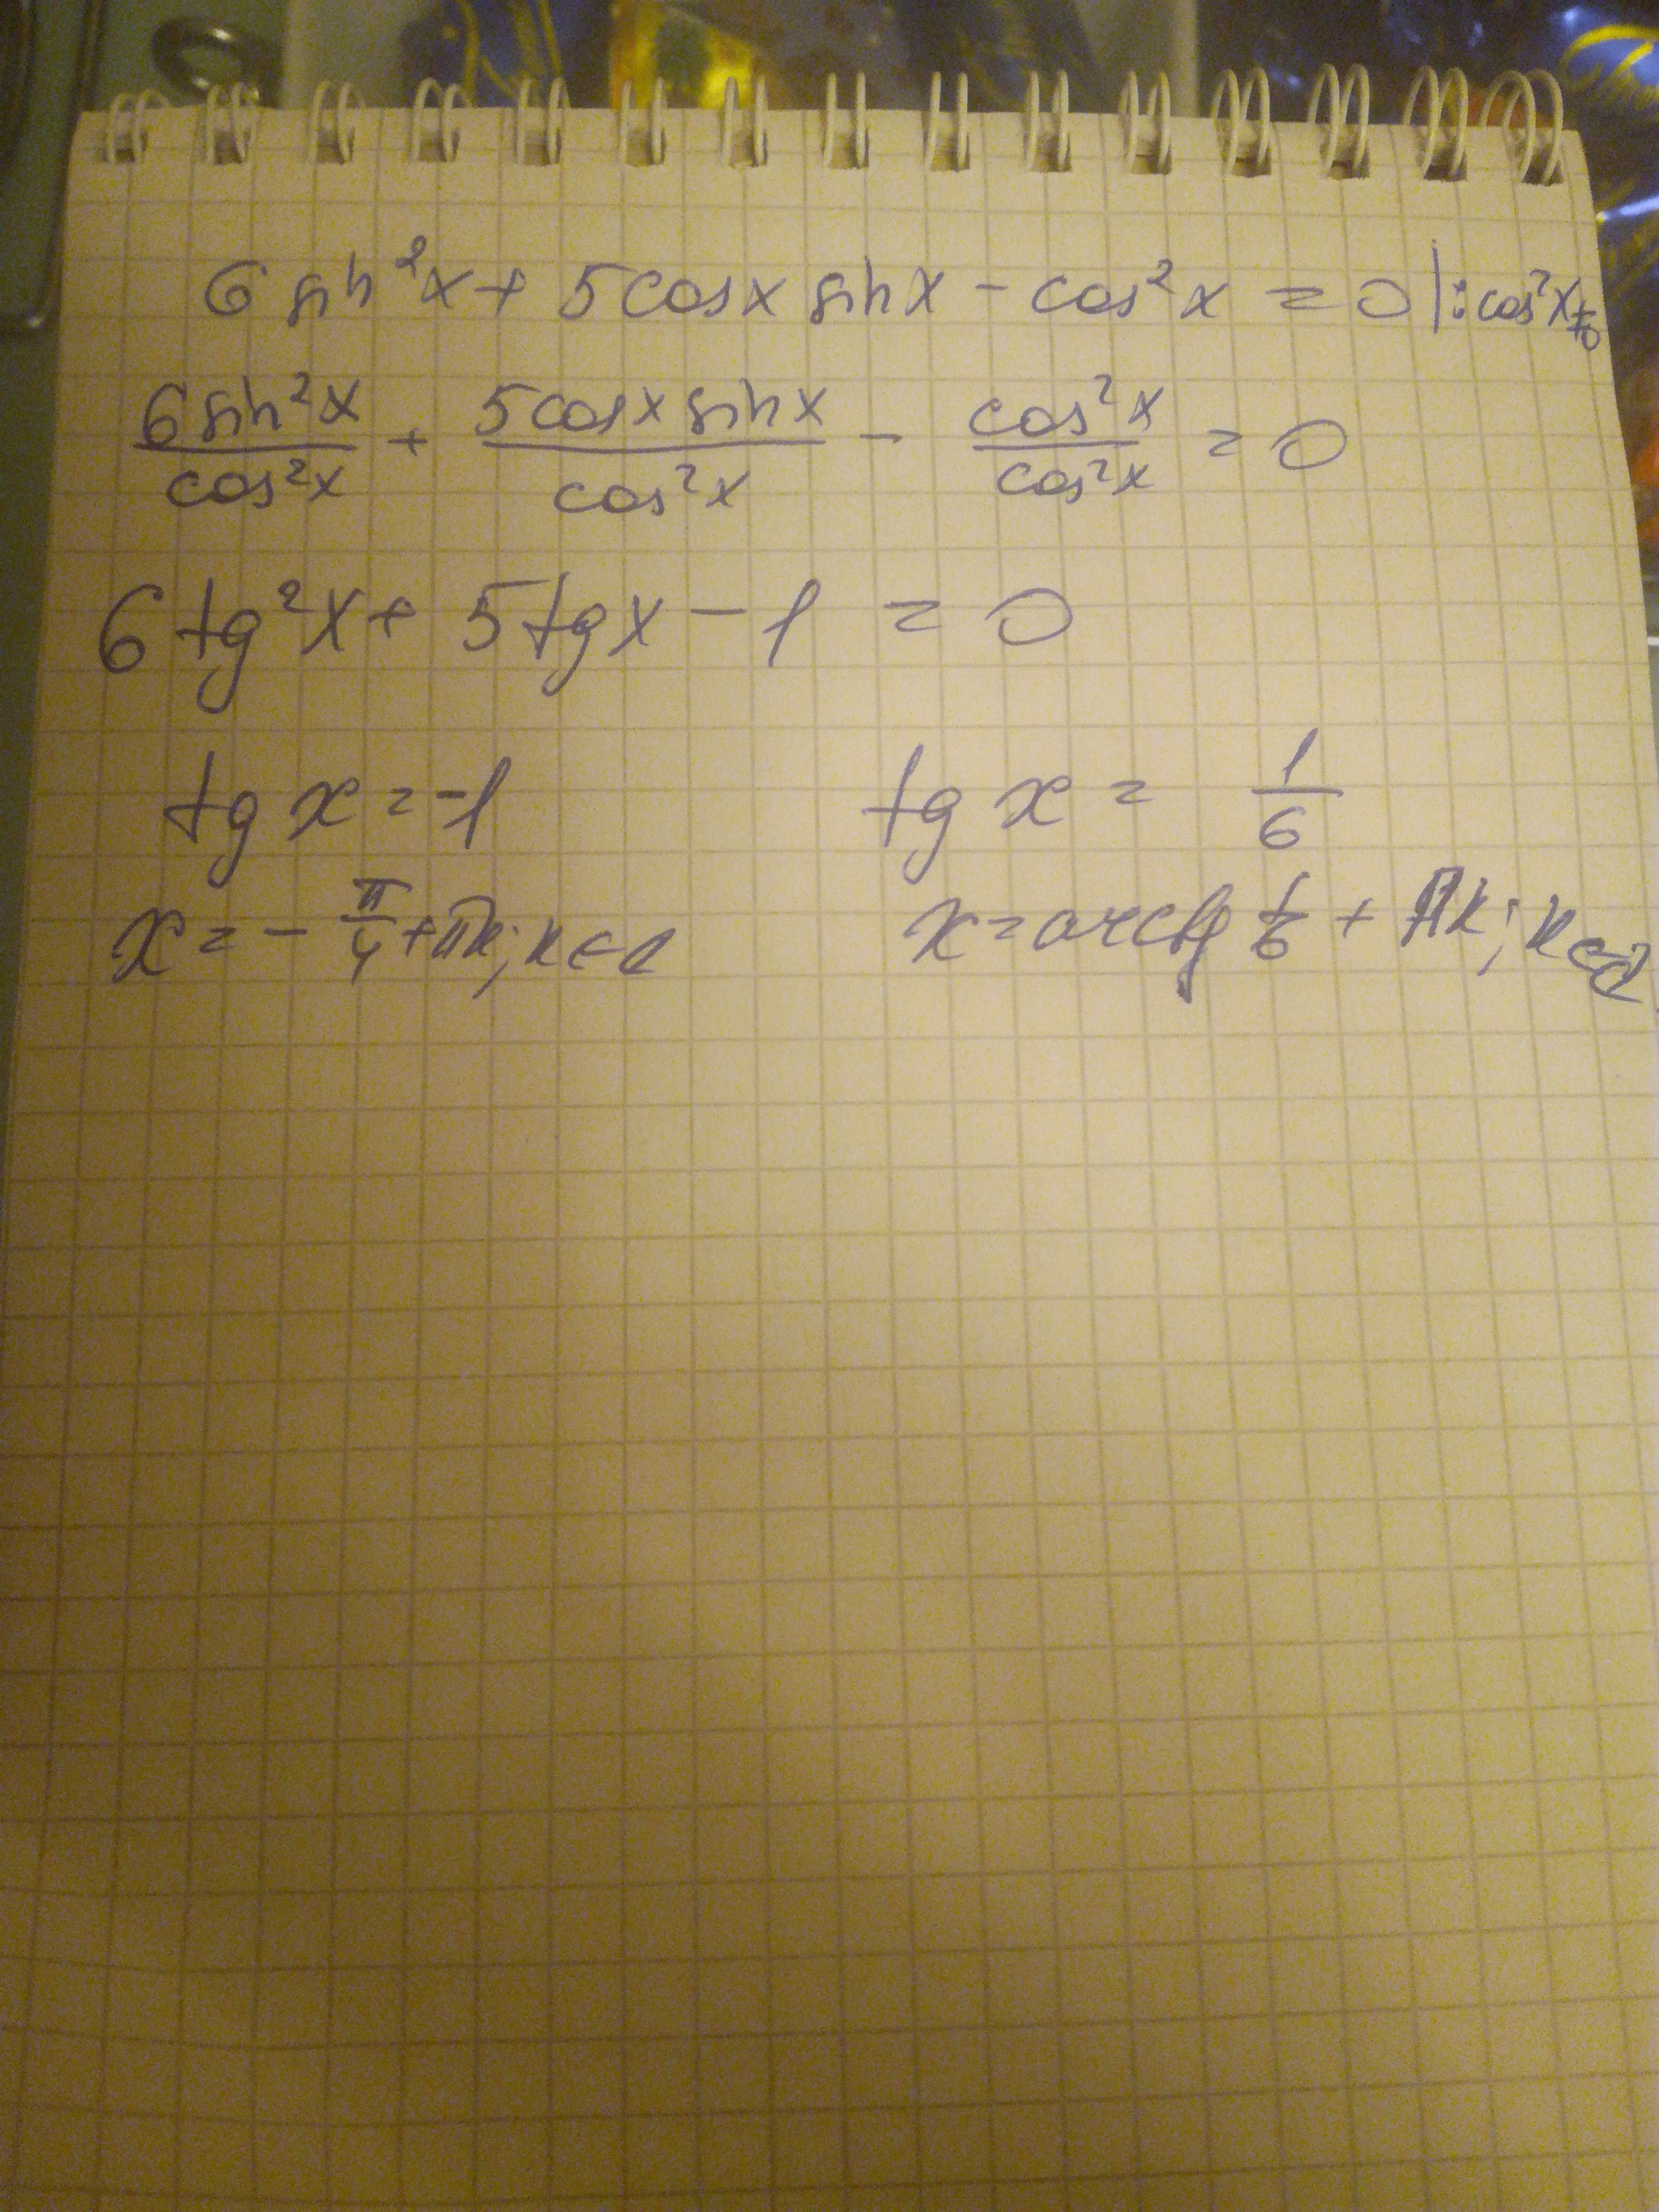 6 sin²x + 5 cosx sinx - cos²x = 0 | : cos²x ≠ 0
6 sin²x / cos²x + 5 cosx sinx / cos²x - cos²x / cos²x = 0
6 tg²x + 5 tgx - 1 = 0
tg x = -1 tg x = 1/6
x = - π/4 + πk; k∈Z x = arctg 1/6 + πk; k∈Z